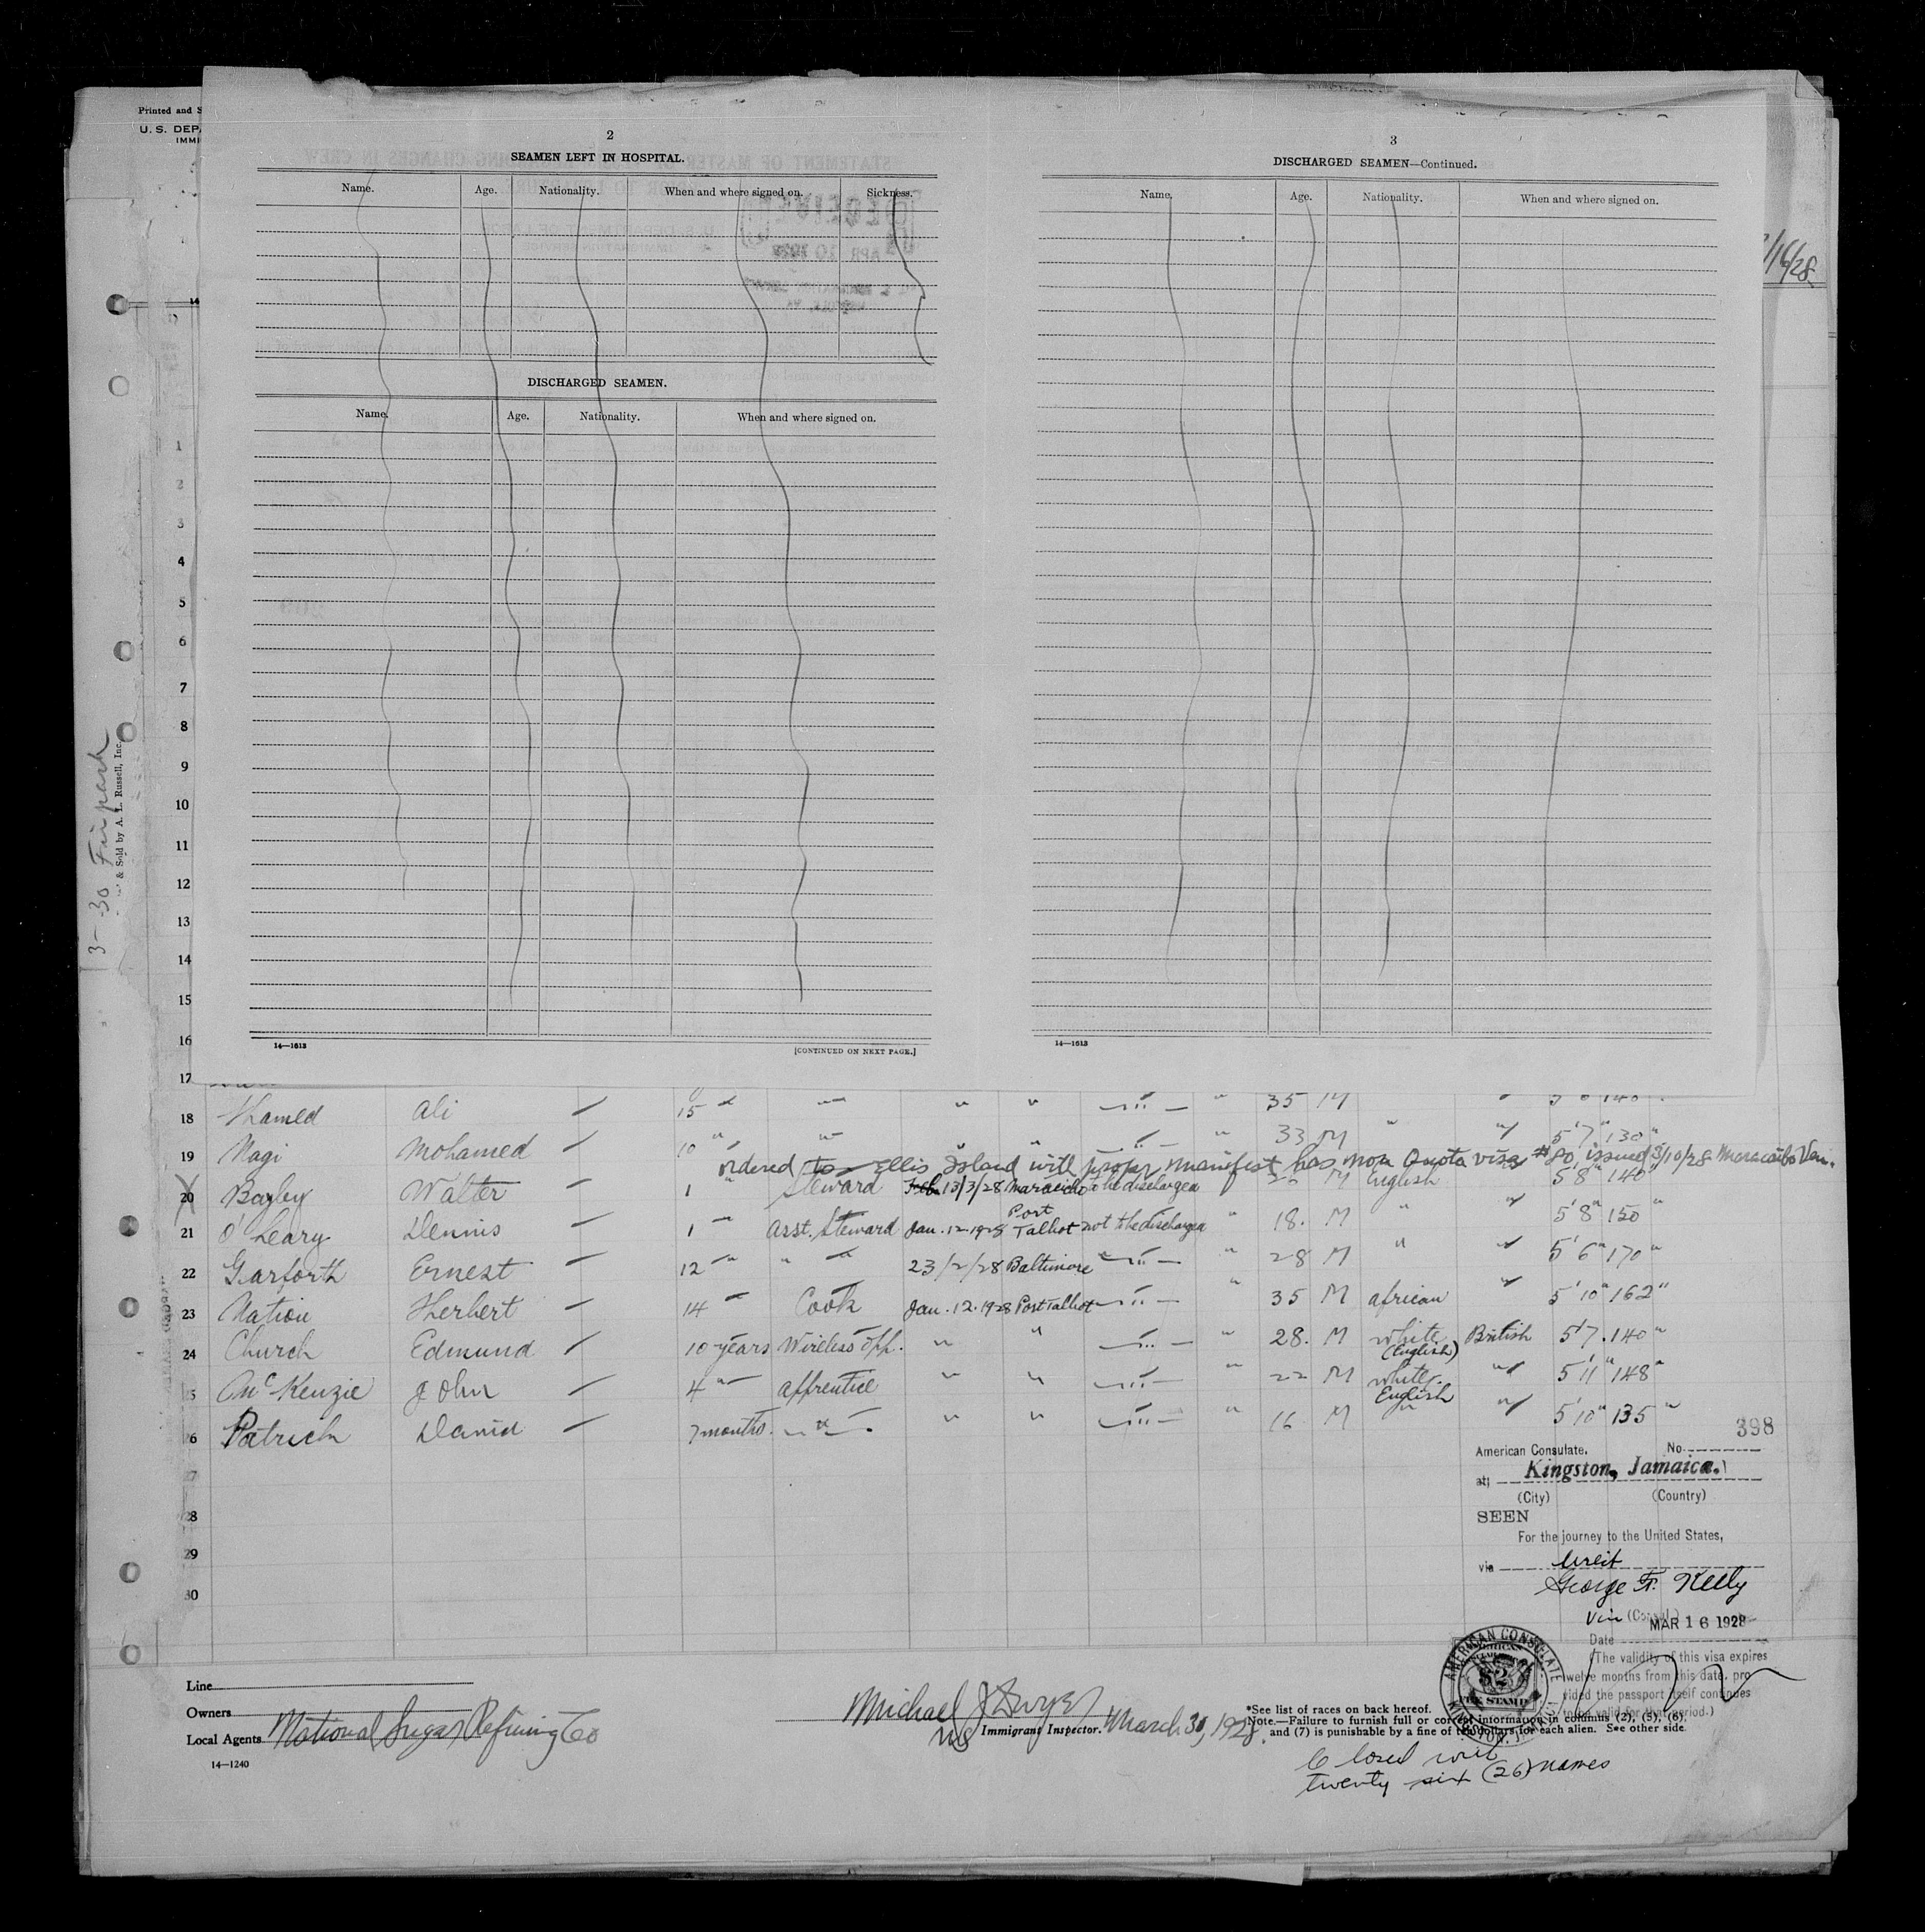 Printed and S
U. S. DEPA
IMMI
2
SEAMEN LEFT IN HOSPITAL.
Name. Age. Nationality. When and where signed on. Sickness.
DISCHARGED SEAMEN.
Name. Age. Nationality. When and where signed on.
14—1613 [CONTINUED ON NEXT PAGE.]
3
DISCHARGED SEAMEN—Continued.
Name. Age. Nationality. When and where signed on.
14—1613
/16/28
3-30 Fairpark
& Sold by A. L. Russell, Inc.
1
2
3
4
5
6
7
8
9
10
11
12
13
14
15
16
17
18 Hamed Ali 15 " " " " " 35 M
19 Nagi Mohamed 10 " " " " " 33 M " " 5'7" 130 "
ordered to Ellis Island with proper manifest has non Quota visa #80 issued 3/10/28 Maracaibo Ven.
20 Bayley Walter 1 " Steward 13/3/28 Maracaibo to be discharged M English 5'8" 140 "
21 O'Leary Dennis 1 " Asst. Steward Jan. 12. 1928 Port Talbot not to be discharged " 18. M " " 5'8" 150 "
22 Garforth Ernest 12 " " " 23/2/28 Baltimore " " 28 M " " 5'6" 170 "
23 Nation Herbert 14 " Cook Jan. 12. 1928 Port Talbot " " 35 M african " 5'10" 162 "
24 Church Edmund 10 years Wireless Opp. " " " " 28. M white (English) British 5'7. 140 "
5 McKenzie John 4 " apprentice " " " " 22 M white. English " 5'11" 148 "
6 Patrick David 7 months. " " " " " 16 M " " 5'10" 135 "
27
28
29
30
398
American Consulate. No.
at Kingston, Jamaica.
(City) (Country)
SEEN
For the journey to the United States,
via direct
George F. Kelly
Vice (Consul.)
MAR 16 1928
Date
(The validity of this visa expires
twelve months from this date, pro
vided the passport itself continues
to be valid for that period.)
AMERICAN CONSULATE
Line
Owners
Local Agents National Sugar Refining Co
14—1240
Michael J Dwyer
US Immigrant Inspector. March 30, 1928.
*See list of races on back hereof.
Note.—Failure to furnish full or correct information in columns (2), (5), (6),
and (7) is punishable by a fine of ten dollars for each alien. See other side.
Closed with
twenty six (26) names